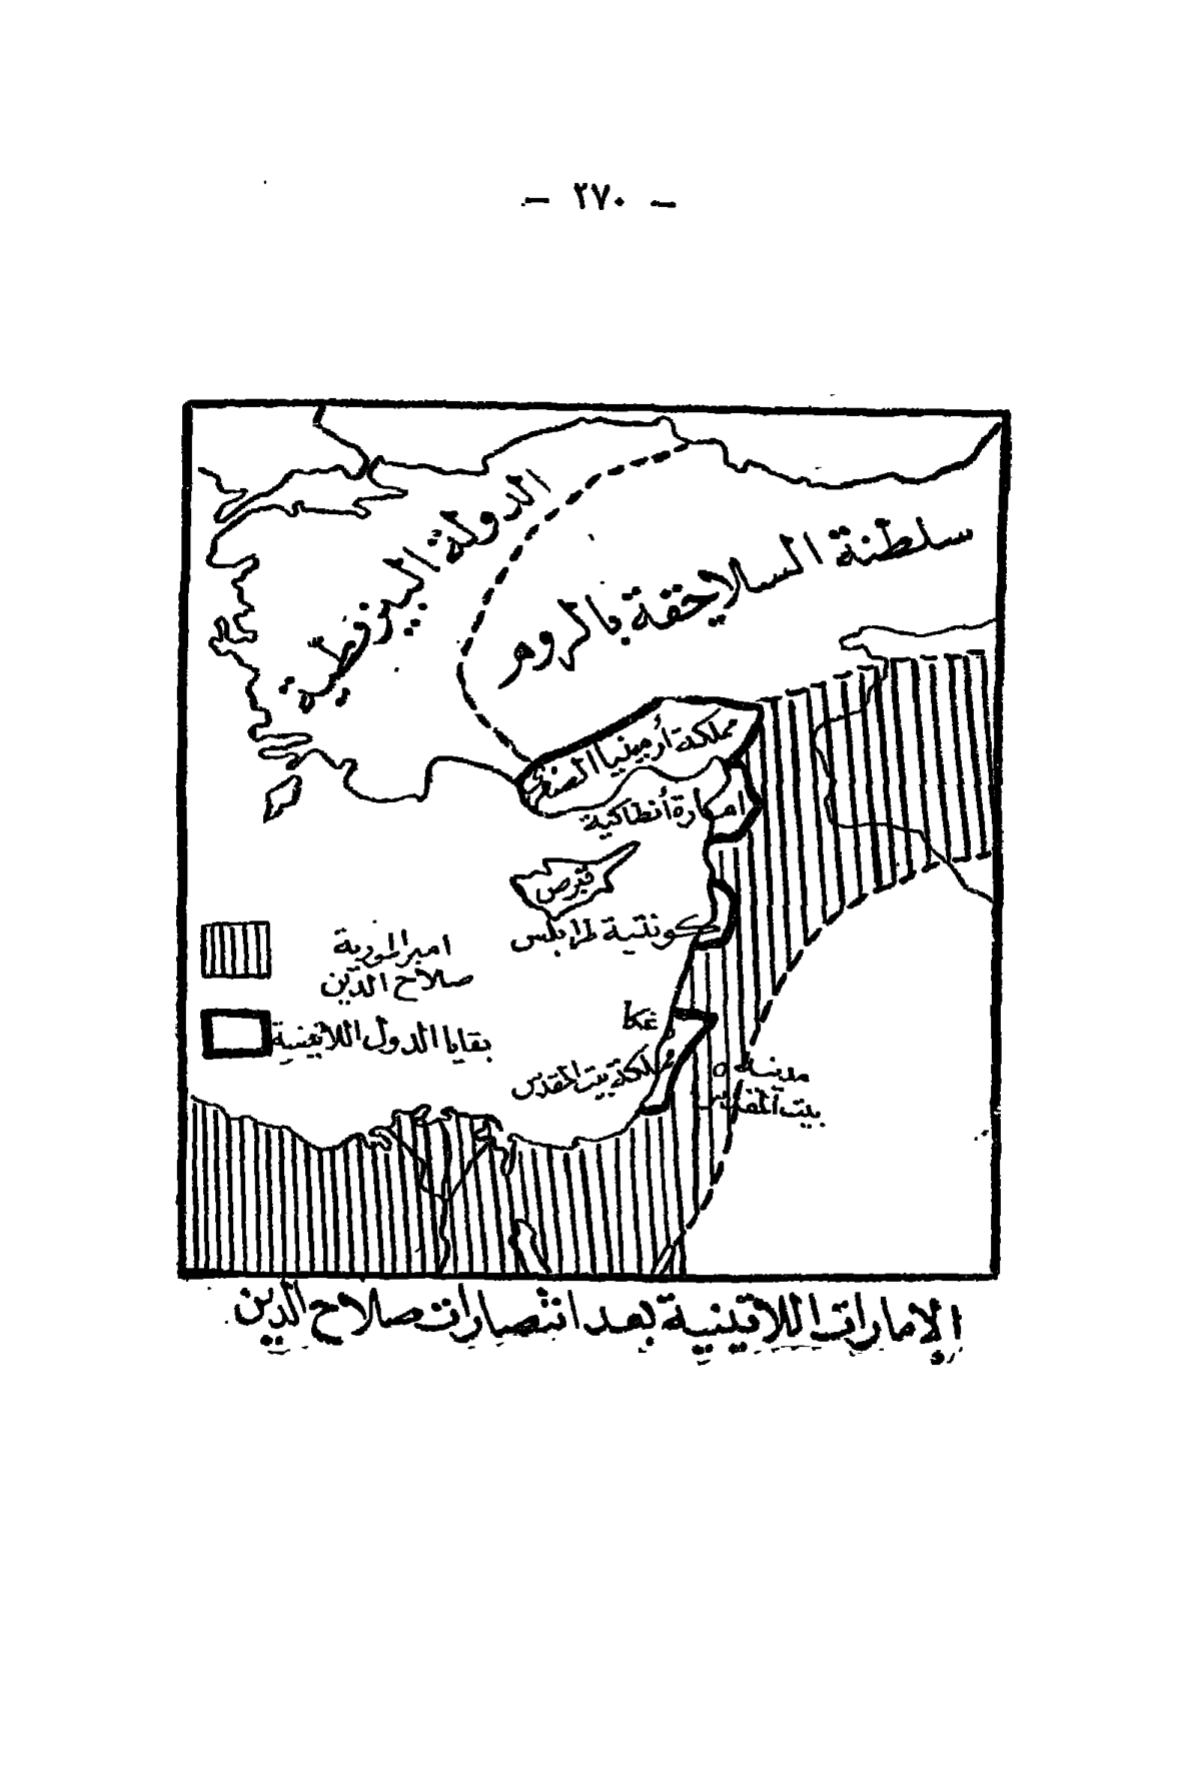 — ٢٧٠ —
الدولة البيزنطية
سلطنة السلاجقة بالروم
مملكة أرمينيا الصغرى
امارة أنطاكية
قبرص
كونتية طرابلس
امبراطورية
صلاح الدين
بقايا الدول اللاتينية
عكا
مملكة بيت المقدس
مدينة
بيت المقدس
الإمارات اللاتينية بعد انتصارات صلاح الدين